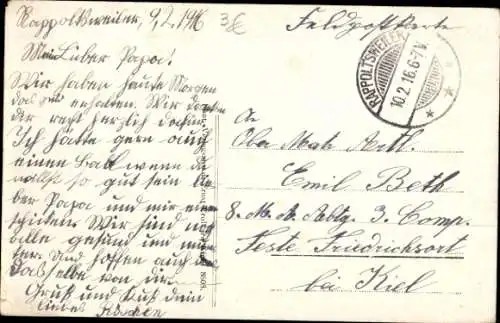 Rappoltsweiler, 9.2.1916
Mein Lieber Papa!
Wir haben heute Morgen
das erhalten. Wir danken
dir recht herzlich dafür.
Ich hätte gern auch
einen Ball wenn du
wollst so gut sein lie
ber Papa und mir einen
schicken. Wir sind noch
alle gesund und mun
ter. Und hoffen auch
dasselbe von dir.
Gruß und Kuß dein
liebes
3€
Feldpostkarte
RAPPOLTSWEILER
10.2.16.6-7V.
An
Ober Matr. Artl.
Emil Beth
8. M. A. Abtlg. 3. Comp.
Feste Friedrichsort
bei Kiel